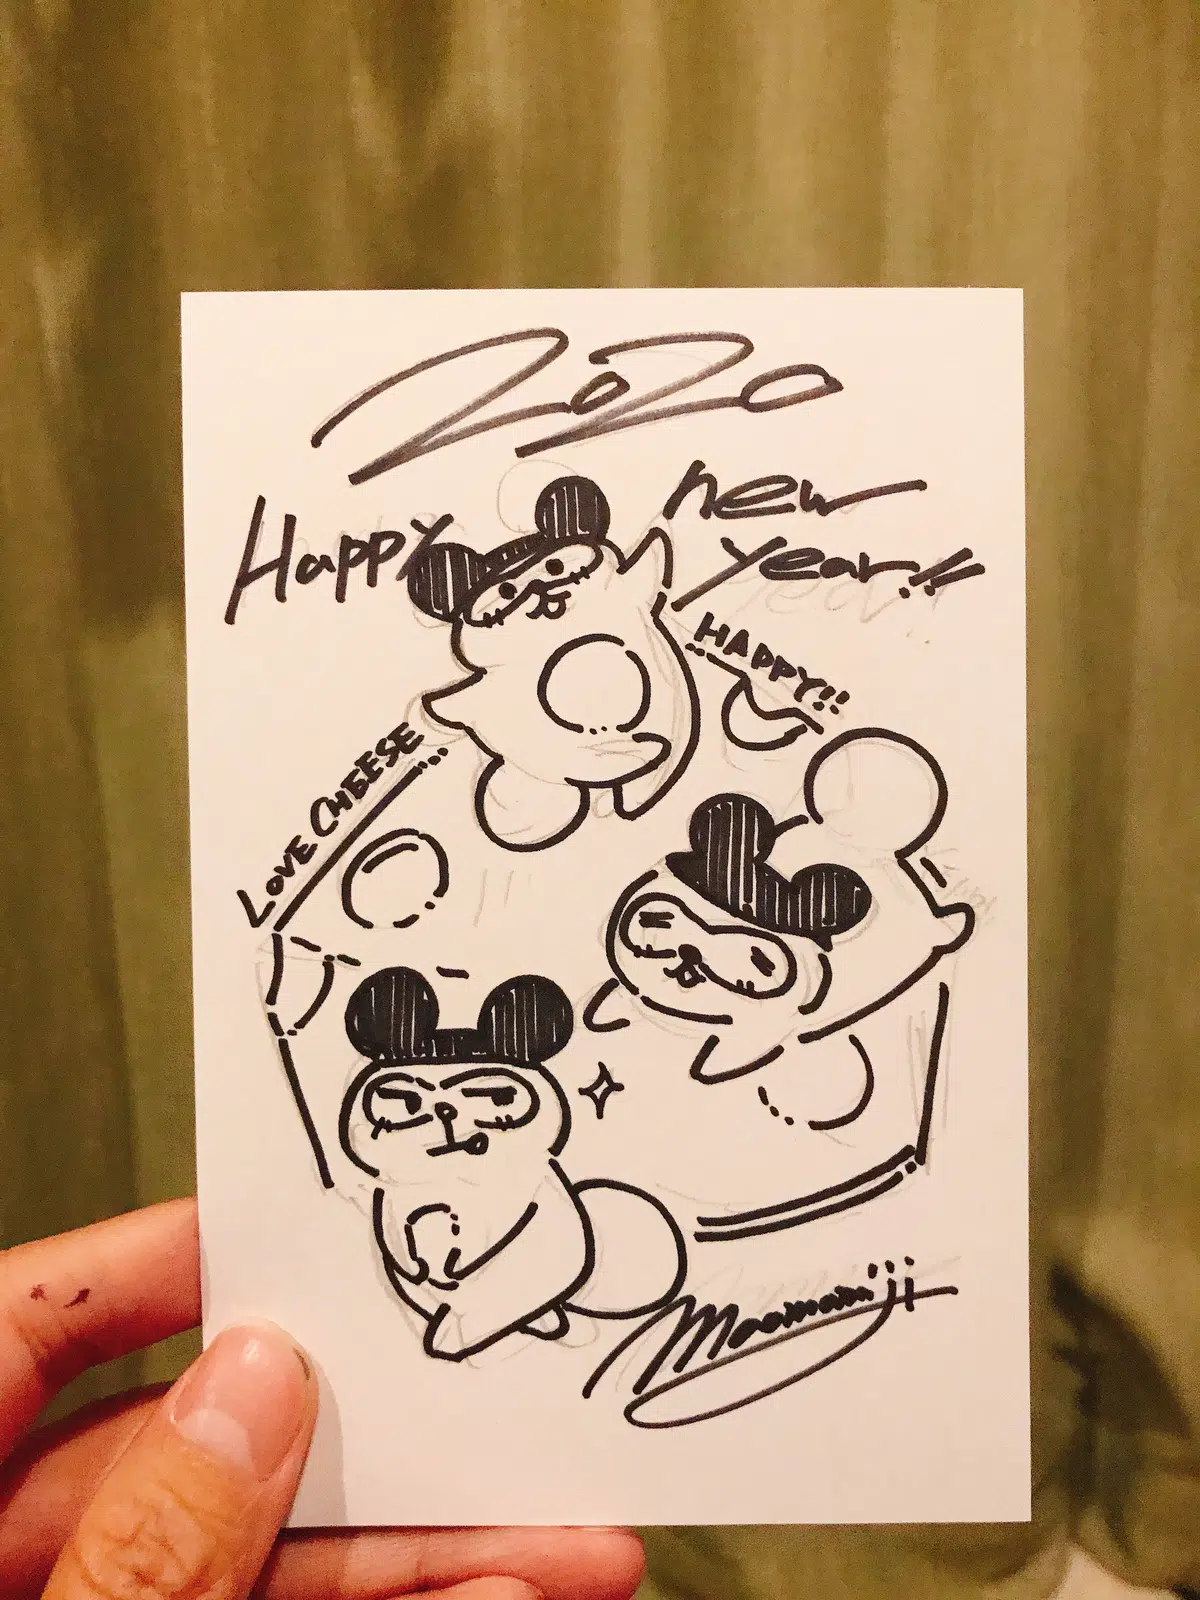 2020
Happy new
year!!
HAPPY!!
LOVE CHEESE...
Maamamiji